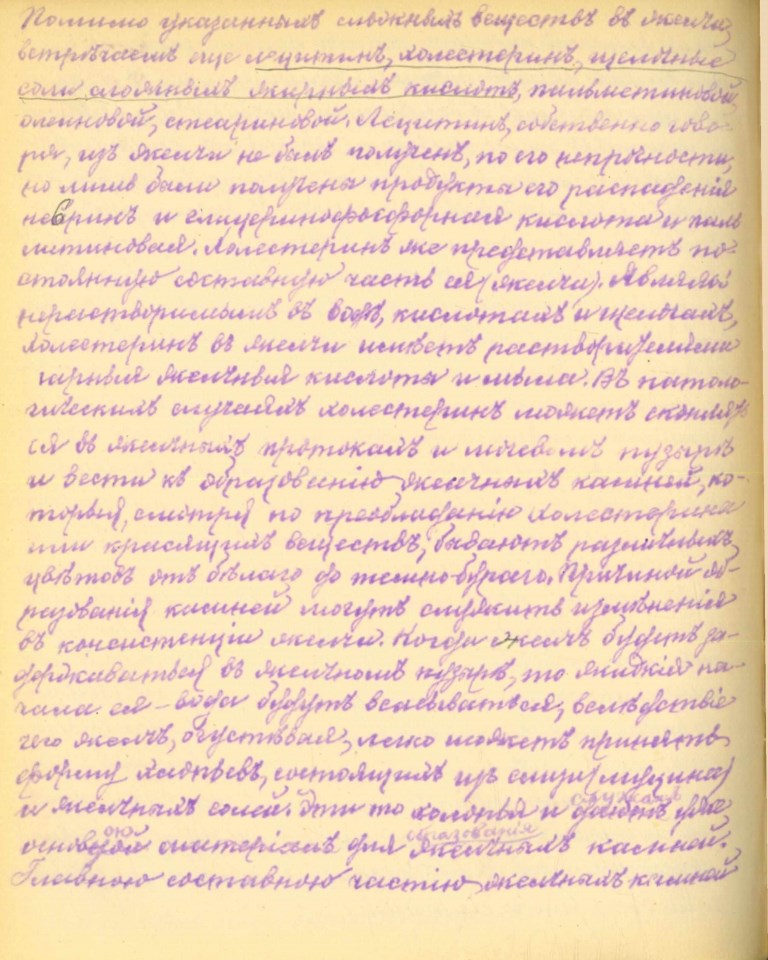 Помимо указанныхъ сложныхъ веществъ въ желчи
встрѣчаемъ еще лецитинъ, холестеринъ, щелочные
соли мѣльныхъ жирныхъ кислотъ, пальметиновой,
олеиновой, стеариновой. Лецитинъ, собственно гово-
ря, изъ желчи не былъ полученъ, по его непрочности,
но лишь были получены продукты его распаденія
невринъ и глицеринофосфорная кислота и паль
митиновая. Холестеринъ же представляетъ по-
стоянную составную часть ея (желчи). Являясь
нерастворимымъ въ водѣ, кислотахъ и щелочахъ,
холестеринъ въ желчи имѣетъ растворителями
парныя желчныя кислоты и мыла. Въ патоло-
гическихъ случаяхъ холестеринъ можетъ скоплять
ся въ желчныхъ протокахъ и пузырѣ
и вести къ образованію желчныхъ камней, ко-
торыя, смотря по преобладанію холестерина
или красящихъ веществъ, бываютъ различныхъ
цвѣтовъ отъ бѣлаго до темно-бураго. Причиной об-
разованія камней могутъ служить измѣненія
въ консистенціи желчи. Когда желчь будетъ за-
держиваться въ желчномъ пузырѣ, то жидкія на-
чала ея – вода будутъ всасываться, вслѣдствіе
чего желчь, сгустѣвая, легко можетъ принять
форму хлопьевъ, состоящихъ изъ слизи (муцина)
и желчныхъ солей. Эти то хлопья и служатъ
основою матеріаломъ для образованія желчныхъ камней.
Главною составною частію желчныхъ камней